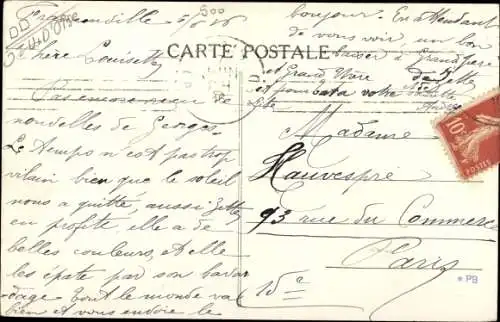 CARTE POSTALE
Chère Louisette
Pas encore reçu de
nouvelles de Georges
Le temps n'est pas trop
vilain bien que le soleil
nous a quitté, aussi Zette
en profite, elle a de
belles couleurs, et elle
les épate par son bavar
dage tout le monde va
bien et vous endore le
bonjour. En attendant
de vous voir, un bon
baiser à Grand père
et Grand Mère de Zette
et pour papa votre
Madame
Hauvespre
93 rue du Commerce
Paris
15e
10c
POSTES
PB